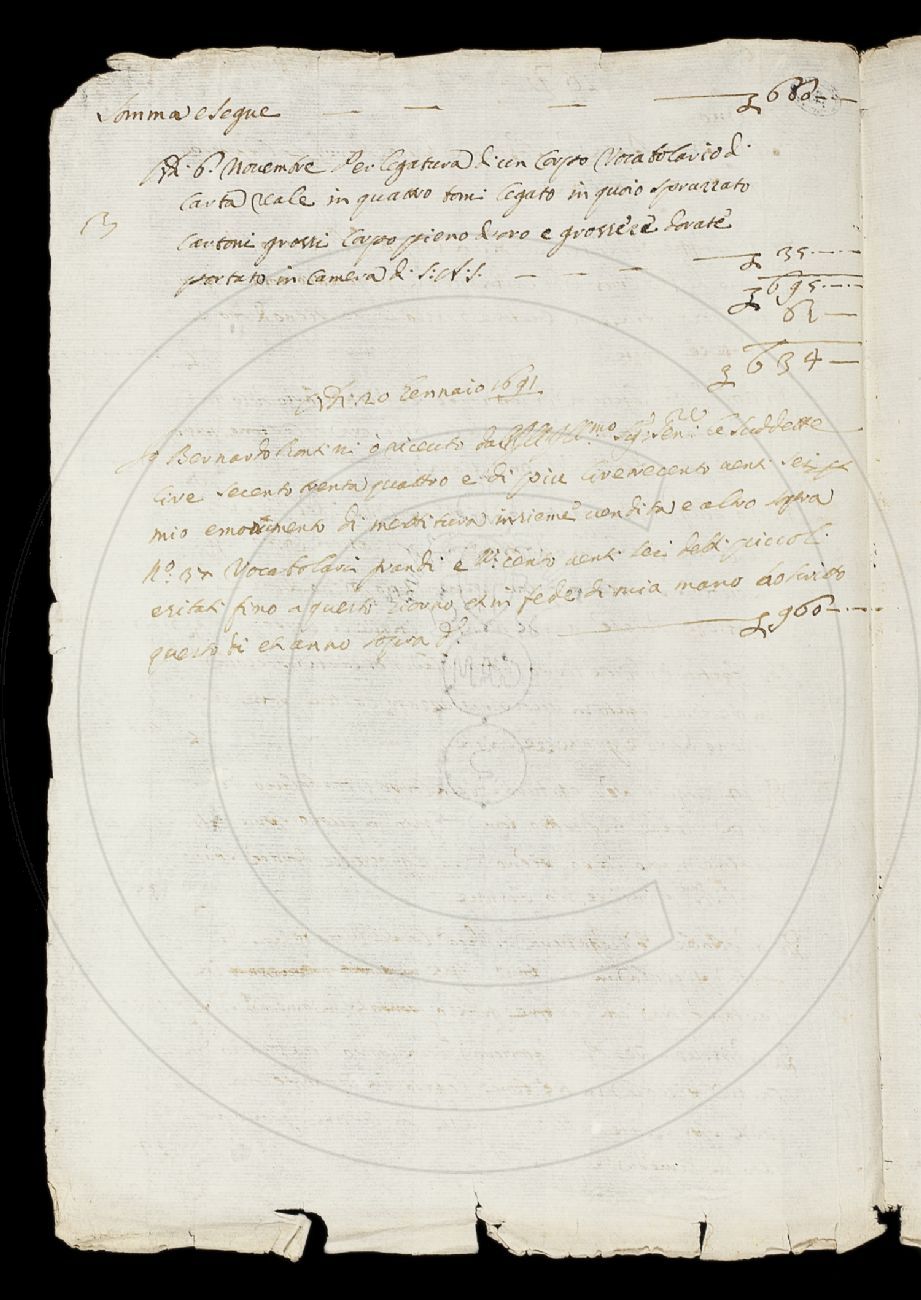 Somma e segue — — — — £ 660 — —
Adi. 6. Novembre Per legatura di un Corpo Vocabolario di
Carta reale in quattro tomi legato in quoio spruzzato
Cartoni grossi Corpo pieno d'oro e grossezze dorate
portato in Camera di S: A: S: — — — — £ 35 — —
£ 695 — —
62 —
£ 634 —
Adi: 20 Gennaio 1691
Io Bernardo ò riceuto da mo Sig.r Sen.re le suddette
Lire secento trenta quattro e di piu lire trecento uenti sei p
mio emolumento di mettitura insieme uendita e altro sopra
No. 37 Vocabolari grandi e No. cento uenti sei detti piccoli
esitati fino a questo giorno, et in fede di mia mano ò scritto
questo dì et anno sopra d.o — £ 960 — —